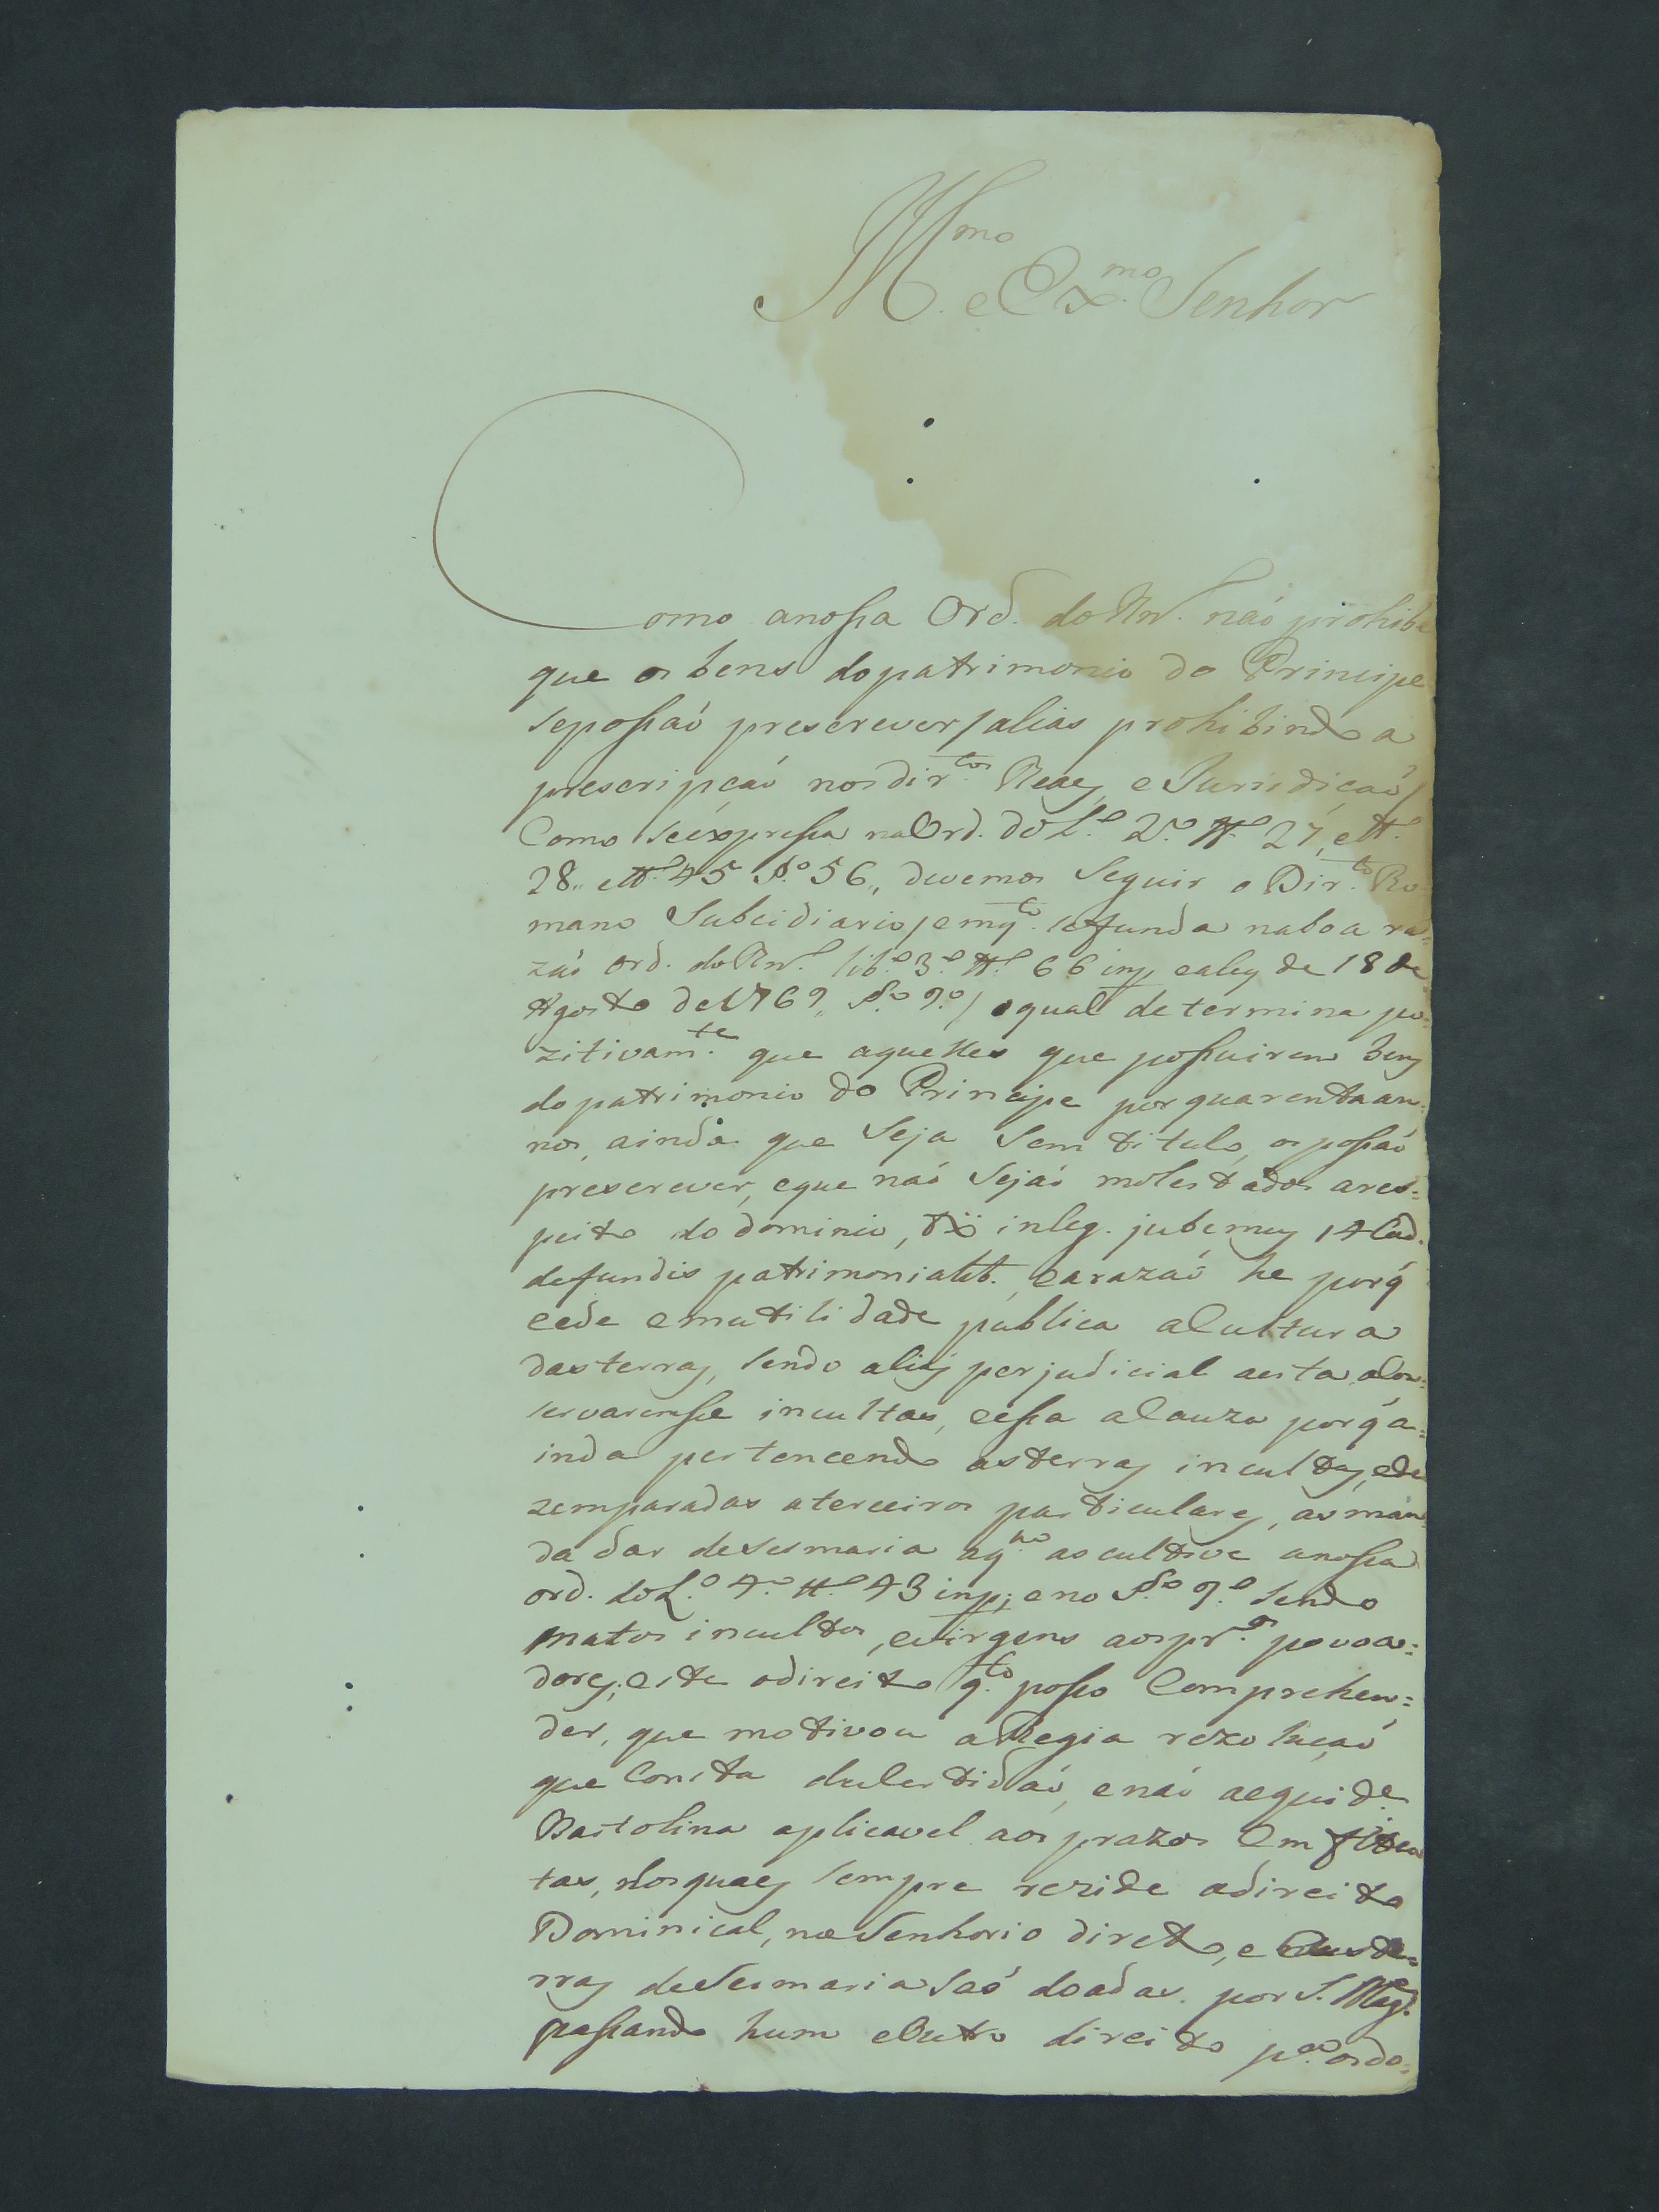 Ill.mo
e Ex.mo Senhor
Como anossa Ord. do Rn.º naõ prohibe
que os bens dopatrimonio do Principe
sepossaõ prescrever /alias prohibindo a
prescripçaõ nos dir.tos Reaes, e Jurisdiçaõ/
Como seexpressa na Ord. do L.º 2.º tt.º 27, e tt.º
28,, e tt.º 45 §.º 56,, devemos seguir o Dir.to Ro=
mano Subcidiario /emq.to sefunda naboa ra=
zaõ Ord. do Rn.º lib.º 3.º tt.º 66 inp, ealey de 18 de
Agosto de 1769,, §.º 9.º/ oqual determina po=
zitivam.te que aquelles que possuirem bens
dopatrimonio do Principe por quarenta an=
nos, ainda que seja sem titulo, os possaõ
prescrever, eque naõ sejaõ molestados ares=
peito do dominio, tx inleg. jubemus 14 Cod.
defundis patrimonialib., earazaõ he porq̃
cede emutilidade publica aCultura
dasterras, sendo aliás perjudicial aesta, aCon=
servaremse incultas, cessa aCauza porq̃ a=
inda pertencendo asterras incultas, ede
zemparadas aterceiros particulares, as man
da dar deSesmaria aq.m as cultive anossa
ord. do L.º 4.º tt.º 43 inp; e no §.º 9.º sendo
matos incultos, evirgens aos pr.os povoa=
dores; este odireito q.to posso Comprehen=
der, que motivou aRegia rezoluçaõ
que Consta daCertidaõ, e naõ aequide
Bartolina aplicavel aos prazos Emfiteu
tas, nos quaes sempre rezide odireito
Dominical, no Senhorio direto, e aste=
rras deSesmaria saõ doadas por S. Mag.e
passando hum eOutro direito p.a osdo=